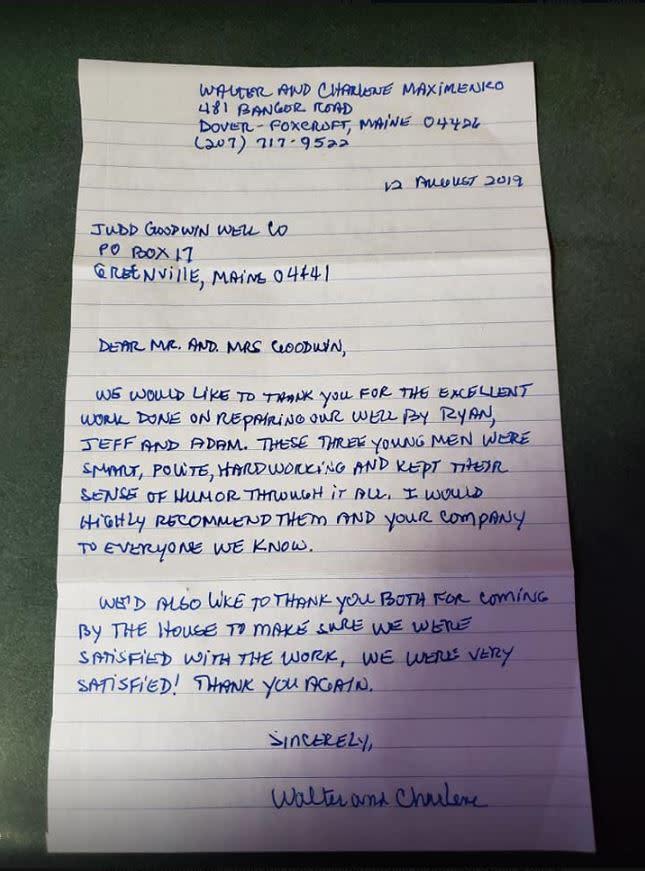 WALTER AND CHARLENE MAXIMENKO
481 BANGOR ROAD
DOVER-FOXCROFT, MAINE 04426
(207) 717-9522
12 AUGUST 2019
JUDD GOODWIN WELL CO
PO BOX 17
GREENVILLE, MAINE 04441
DEAR MR. AND. MRS GOODWIN,
WE WOULD LIKE TO THANK YOU FOR THE EXCELLENT
WORK DONE ON REPAIRING OUR WELL BY RYAN,
JEFF AND ADAM. THESE THREE YOUNG MEN WERE
SMART, POLITE, HARDWORKING AND KEPT THEIR
SENSE OF HUMOR THROUGH IT ALL. I WOULD
HIGHLY RECOMMEND THEM AND YOUR COMPANY
TO EVERYONE WE KNOW.
WE'D ALSO LIKE TO THANK YOU BOTH FOR COMING
BY THE HOUSE TO MAKE SURE WE WERE
SATISFIED WITH THE WORK, WE WERE VERY
SATISFIED! THANK YOU AGAIN.
SINCERELY,
Walter and Charlene